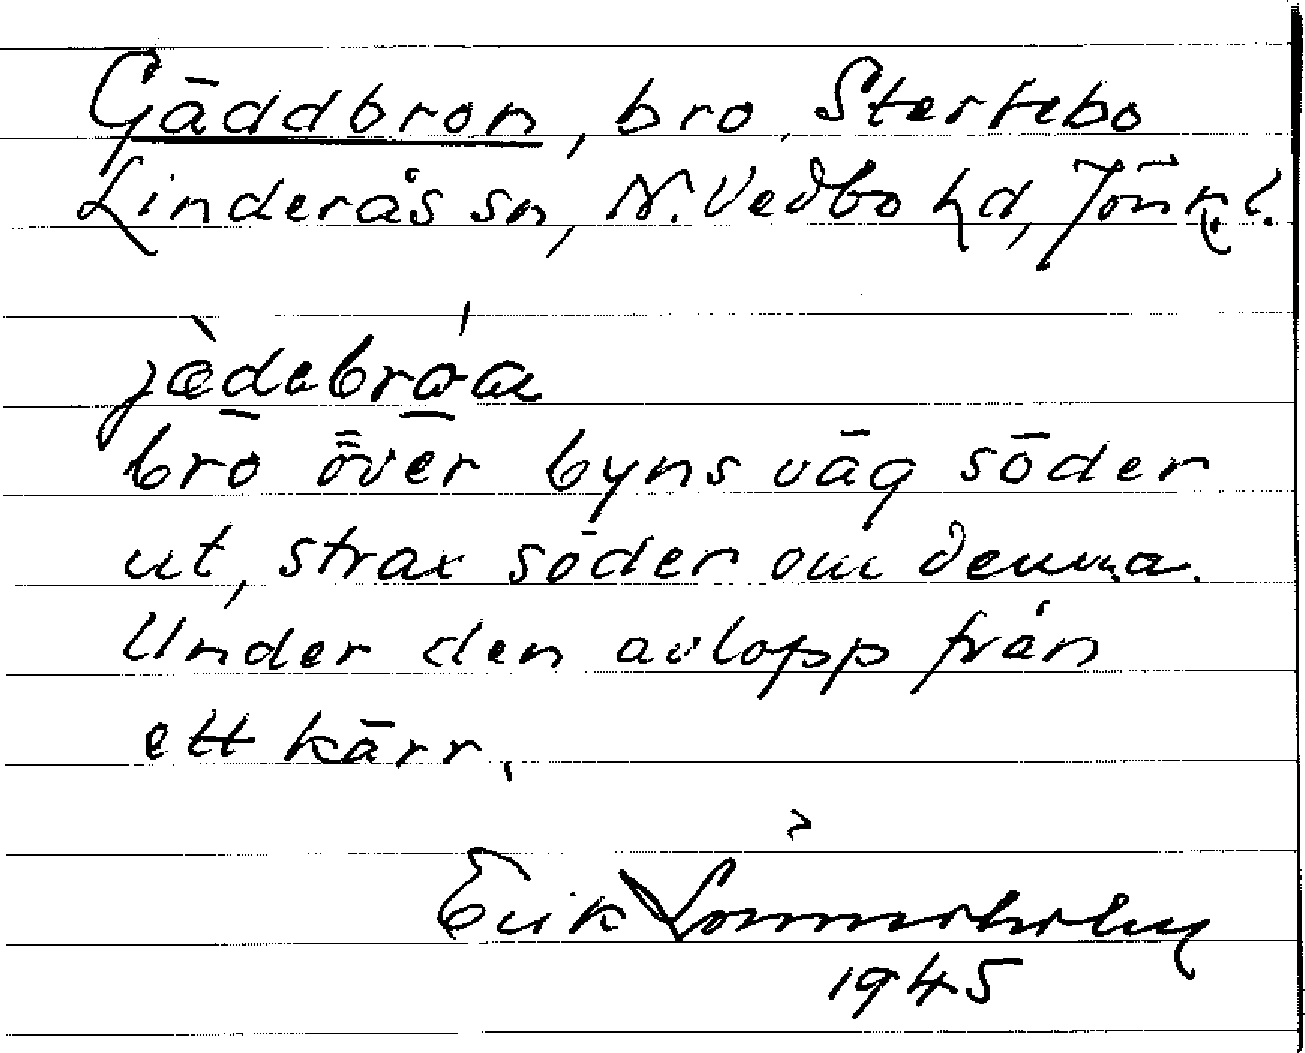 Gäddbron, bro, Stertebo
Linderås sn, N. Vedbo hd, Jönk. l.
bro över byns väg söder
ut, strax söder om denna.
Under den avlopp från
ett kärr.
Erik
1945